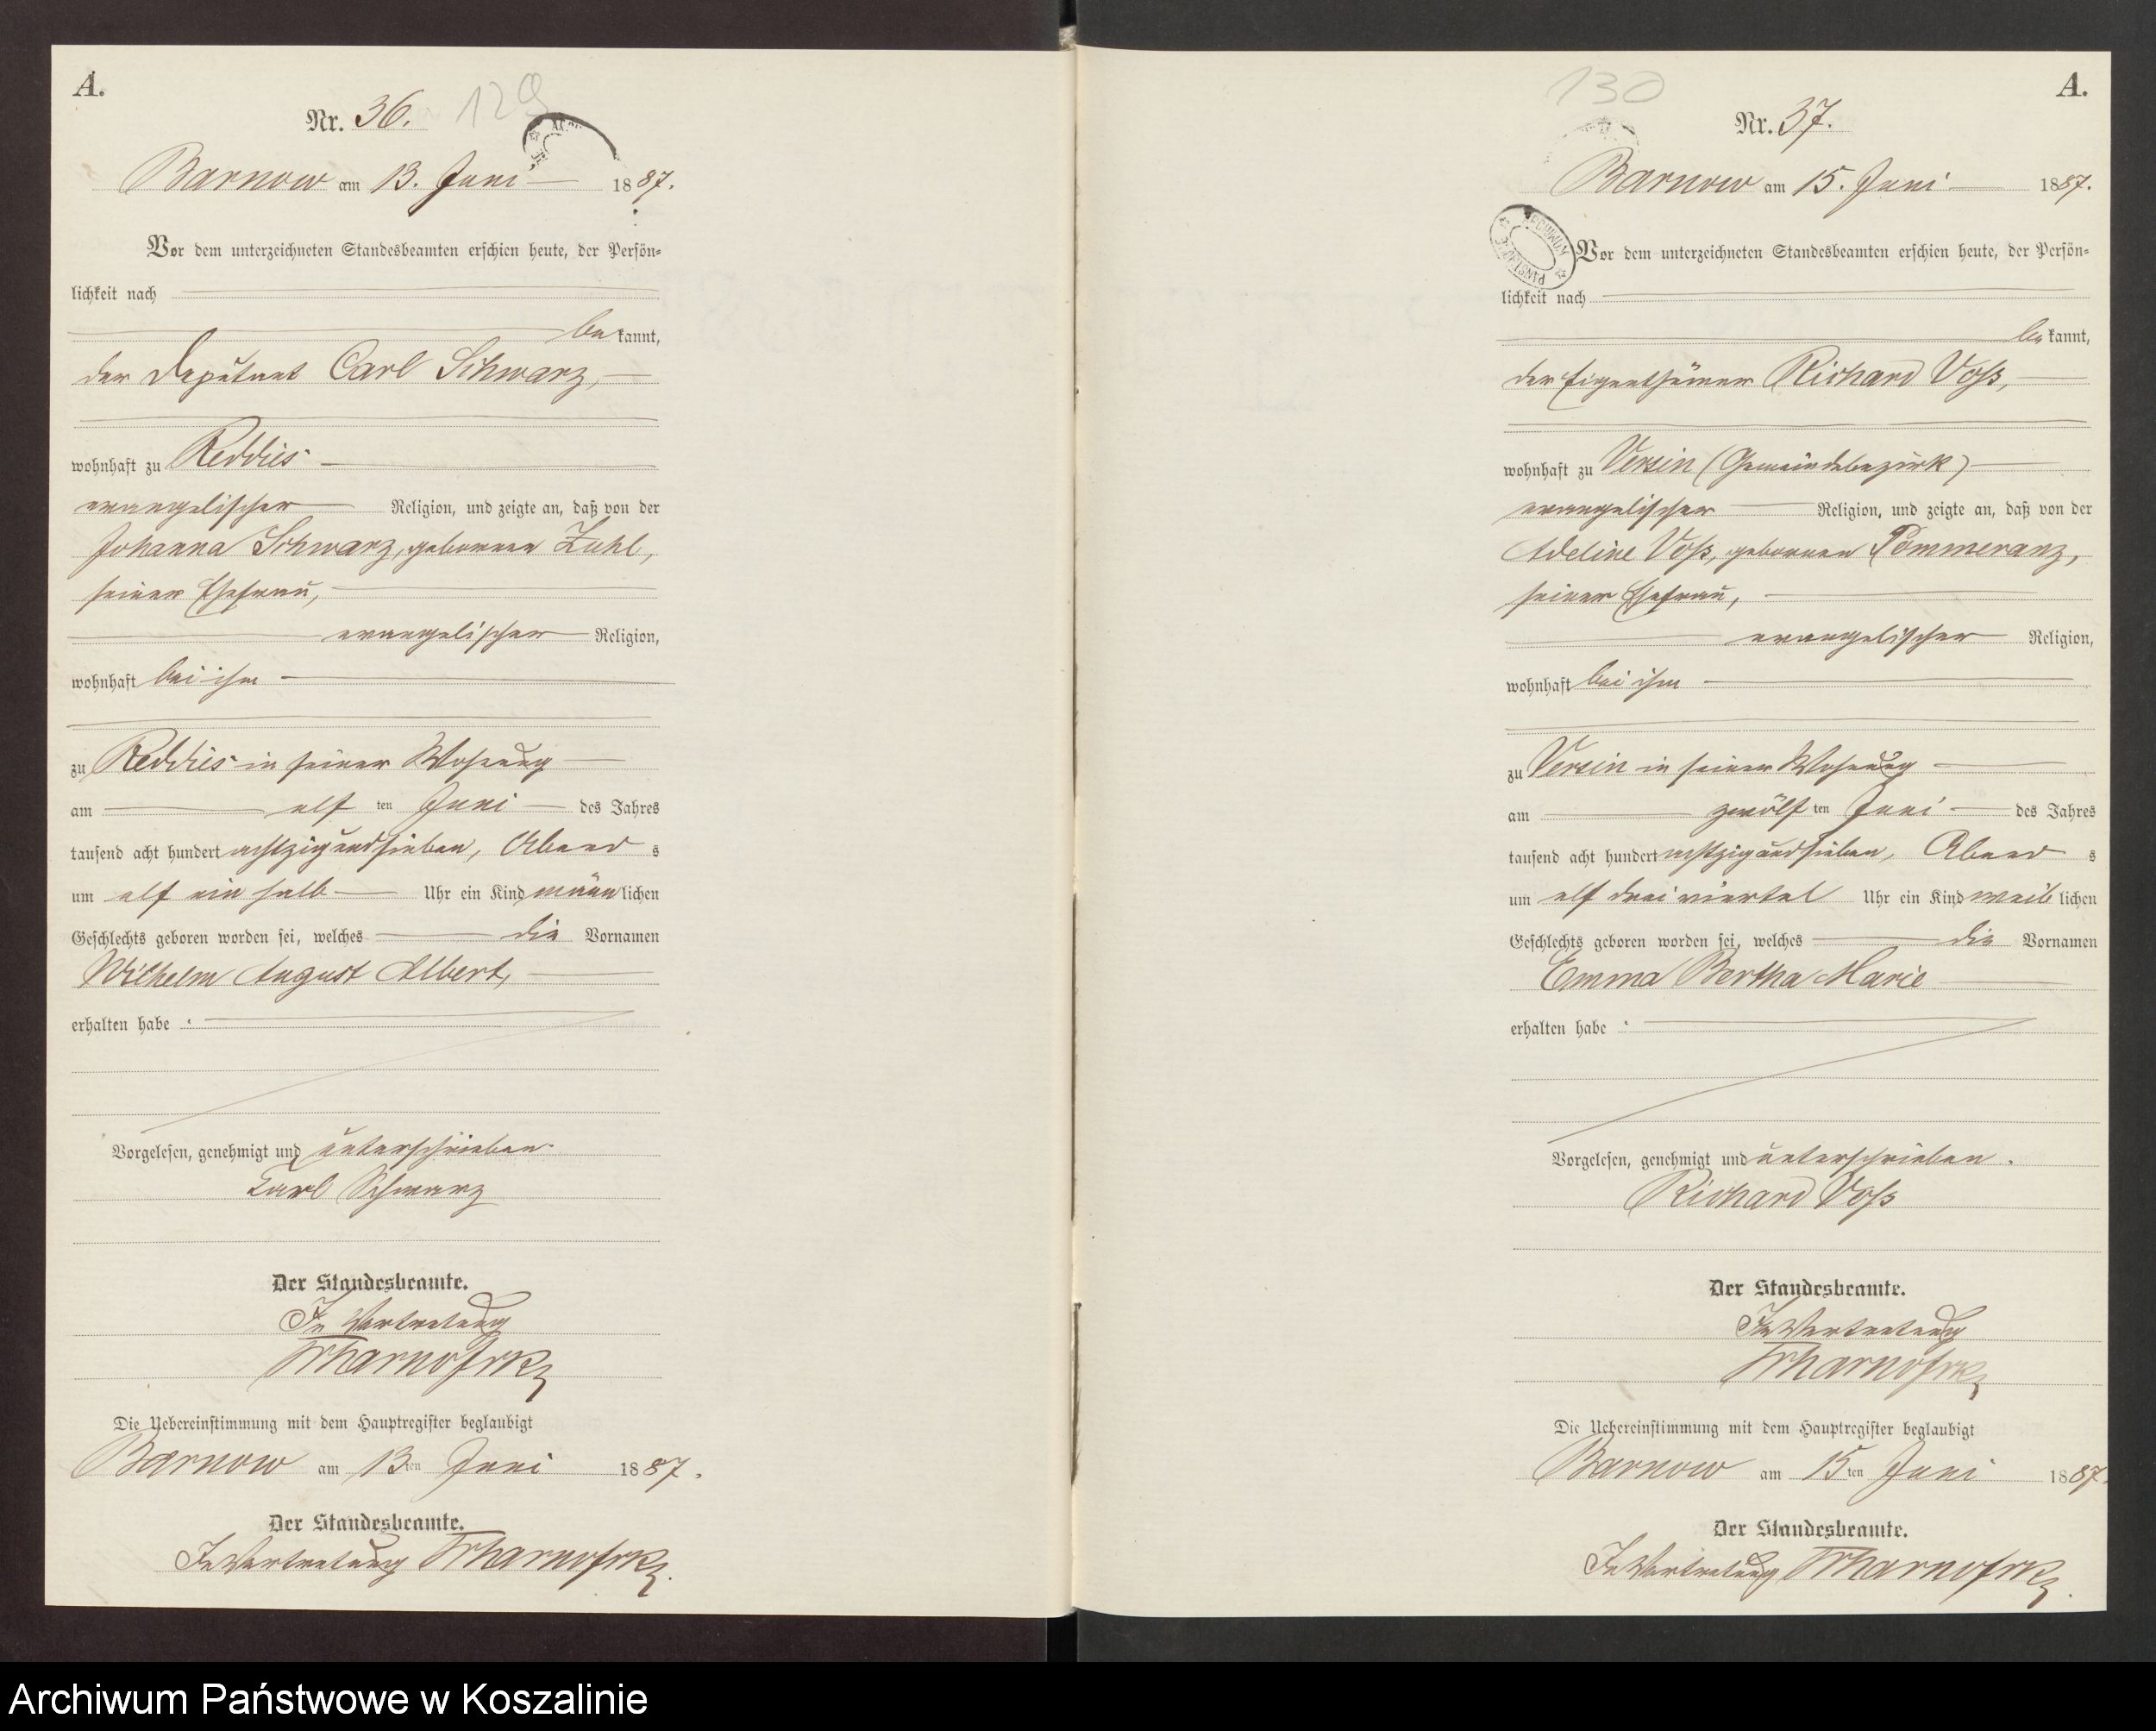 A.
Nr. 36. 129
Barnow am 13. Juni 1887.
Vor dem unterzeichneten Standesbeamten erschien heute, der Persön=
lichkeit nach
bekannt,
der Deputant Carl Schwarz,
wohnhaft zu Reddies
evangelischer Religion, und zeigte an, daß von der
Johanna Schwarz, geborenen Zuhl,
seiner Ehefrau,
evangelischer Religion,
wohnhaft bei ihm
zu Reddies in seiner Wohnung
am elf ten Juni des Jahres
tausend acht hundert achtzigundsieben, Abend s
um elf ein halb Uhr ein Kind männlichen
Geschlechts geboren worden sei, welches die Vornamen
Wilhelm August Albert,
erhalten habe.
Vorgelesen, genehmigt und unterschrieben.
Karl Schwarz
Der Standesbeamte.
In Vertretung
Die Uebereinstimmung mit dem Hauptregister beglaubigt
Barnow am 13ten Juni 1887.
Der Standesbeamte.
In Vertretung
A.
130
Nr. 37.
Barnow am 15. Juni 1887.
Vor dem unterzeichneten Standesbeamten erschien heute, der Persön=
lichkeit nach
bekannt,
der Eigenthümer Richard Voß,
wohnhaft zu Versin (Gemeindebezirk)
evangelischer Religion, und zeigte an, daß von der
Adeline Voß, geborenen Pommeranz,
seiner Ehefrau,
evangelischer Religion,
wohnhaft bei ihm
zu Versin in seiner Wohnung
am zwölf ten Juni des Jahres
tausend acht hundert achtzigundsieben, Abend s
um elf drei viertel Uhr ein Kind weiblichen
Geschlechts geboren worden sei, welches die Vornamen
Emma Bertha Marie
erhalten habe.
Vorgelesen, genehmigt und unterschrieben.
Richard Voß
Der Standesbeamte.
In Vertretung
Die Uebereinstimmung mit dem Hauptregister beglaubigt
Barnow am 15ten Juni 1887.
Der Standesbeamte.
In Vertretung
Archiwum Państwowe w Koszalinie